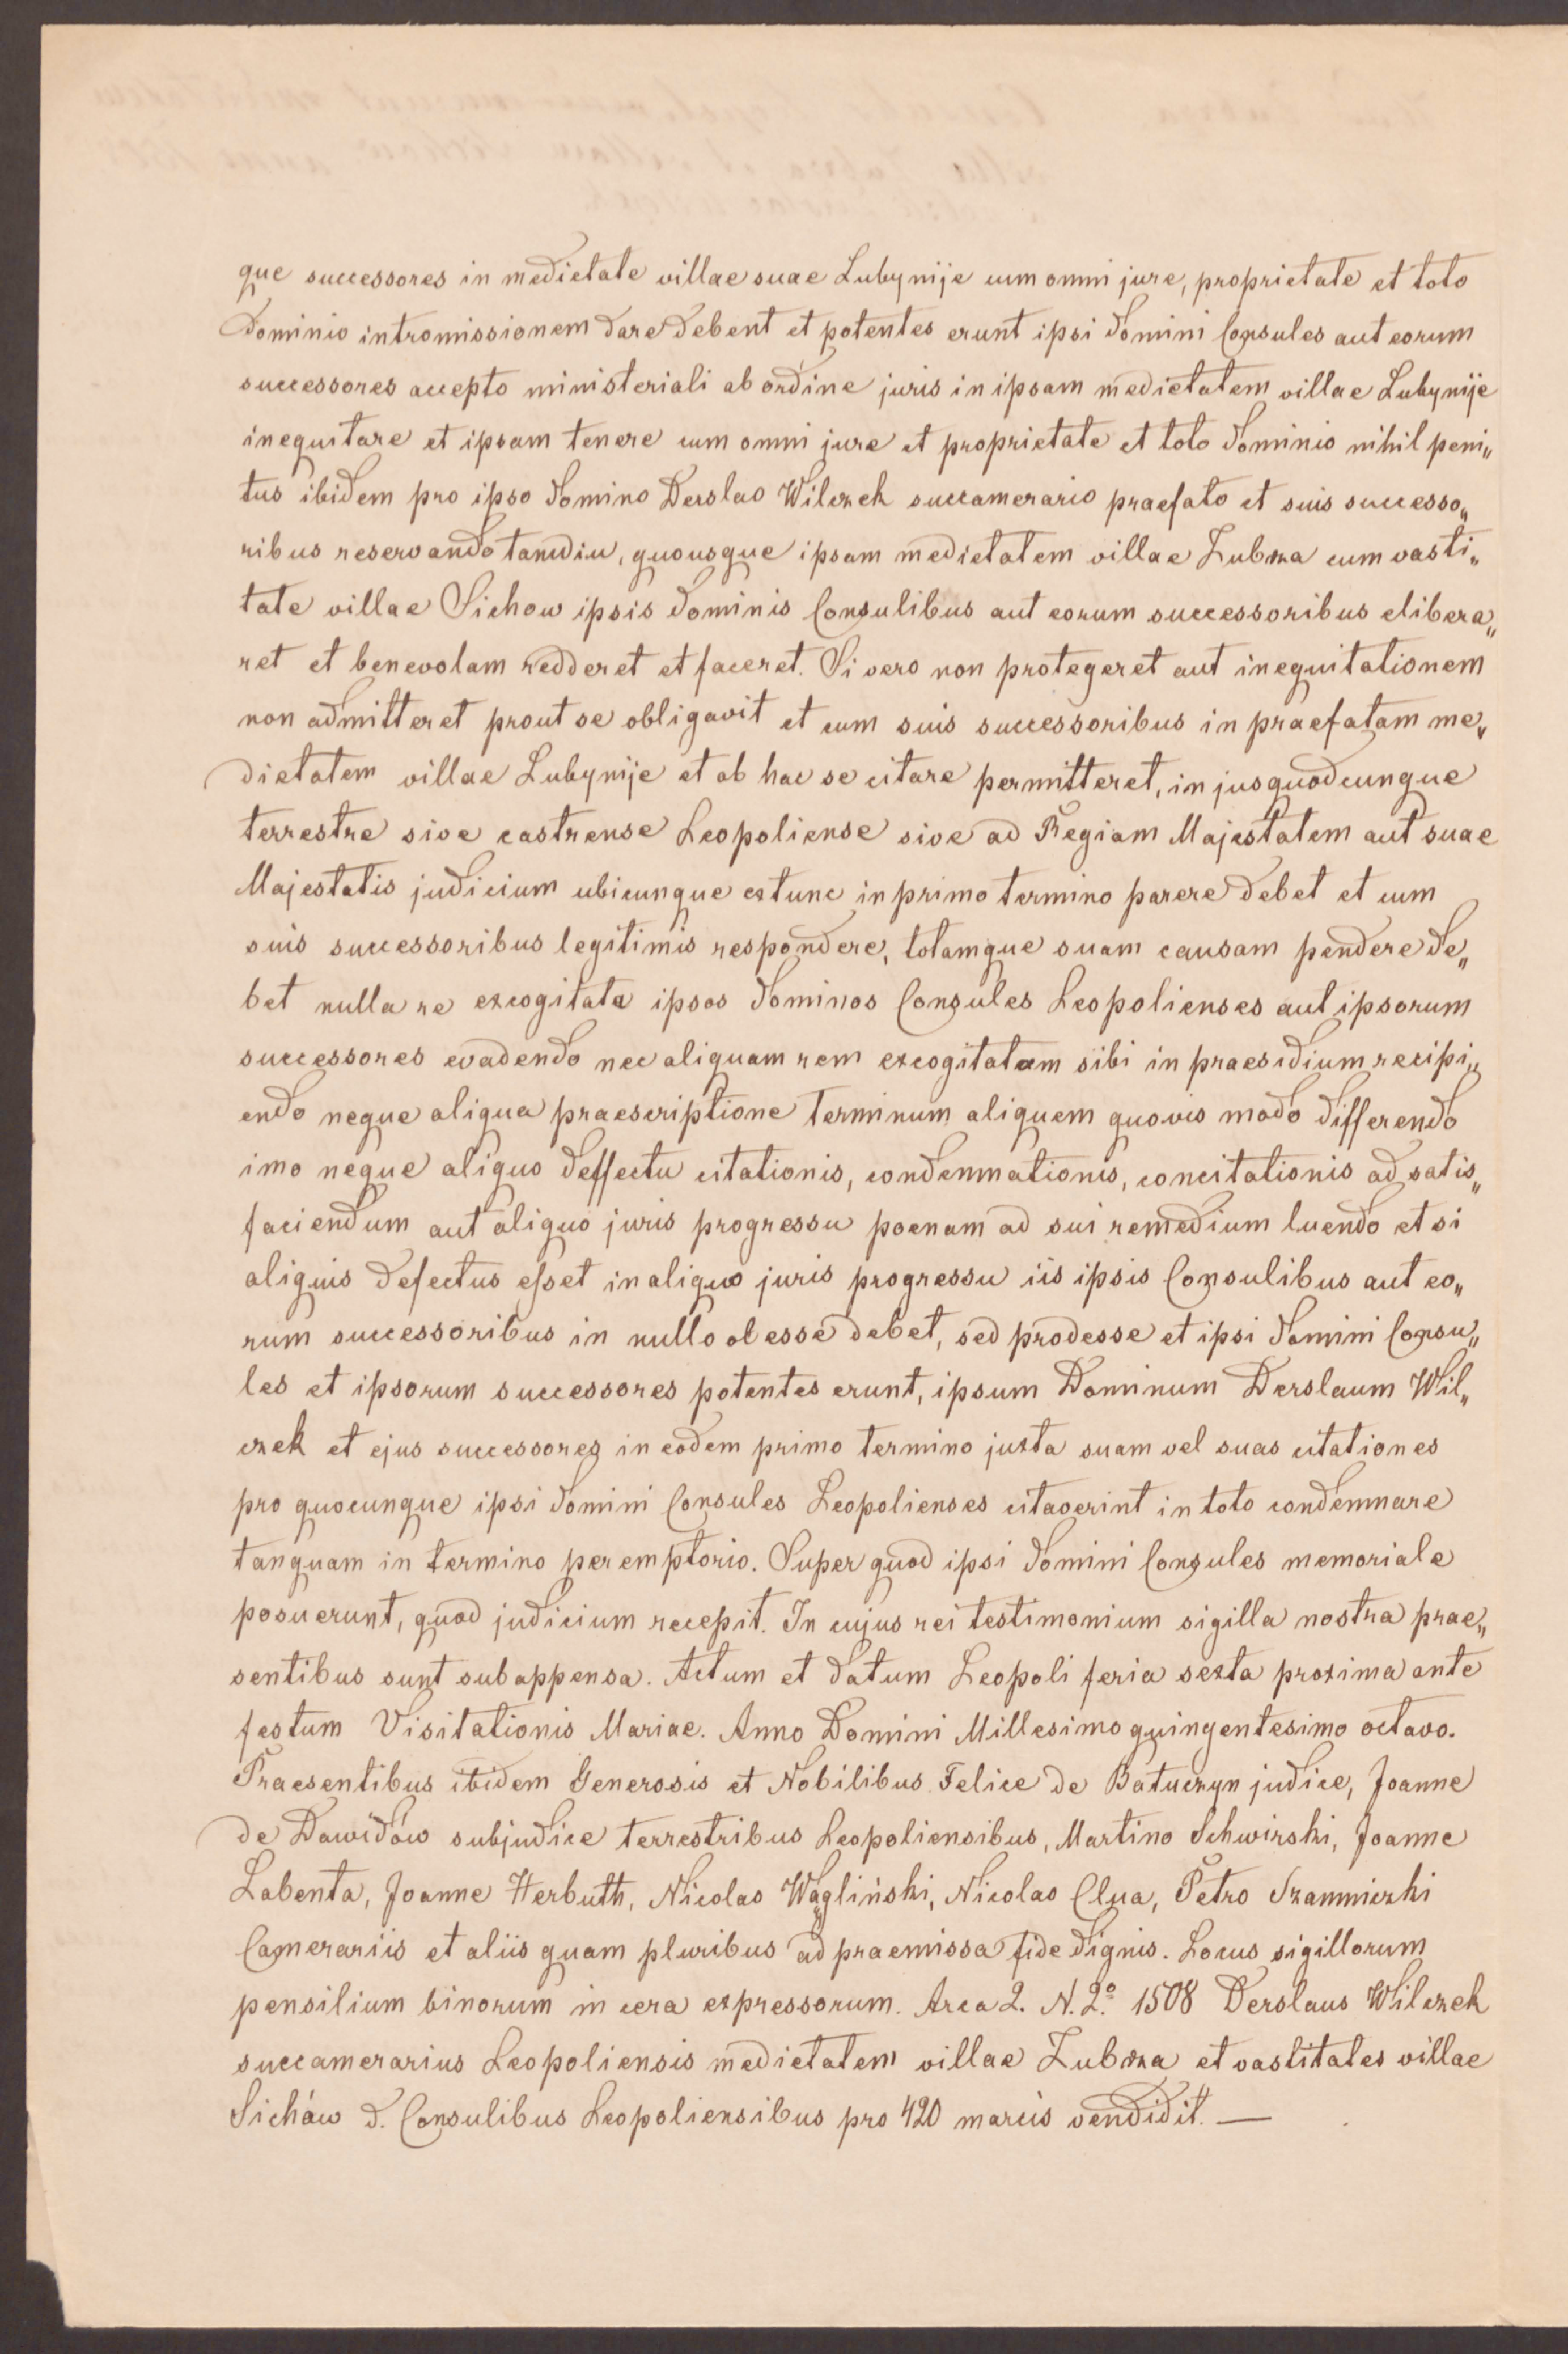 que successores in medietate villae suae Lubynije cum omni jure, proprietate et toto
dominio intromissionem dare debent et potentes erunt ipsi domini Consules aut eorum
successores accepto ministeriali ab ordine juris in ipsam medietatem villae Lubynije
inequitare et ipsam tenere cum omni jure et proprietate et toto dominio nihil peni„
tus ibidem pro ipso domino Derslao Wilczek succamerario praefato et suis successo„
ribus reservando tamdiu, quousque ipsam medietatem villae Zubrza cum vasti„
tate villae Sichow ipsis dominis Consulibus aut eorum successoribus elibera„
ret et benevolam redderet et faceret. Si vero non protegeret aut inequitationem
non admitteret prout se obligavit et cum suis successoribus in praefatam me„
dietatem villae Lubynije et ob hac se citare permitteret, in jus quodcunque
terrestre sive castrense Leopoliense sive ad Regiam Majestatem aut suae
Majestatis judicium ubicunque extunc in primo termino parere debet et cum
suis successoribus legitimis respondere, totamque suam causam pendere de„
bet nulla re excogitata ipsos dominos Consules Leopolienses aut ipsorum
successores evadendo nec aliquam rem excogitatam sibi in praesidium recipi„
endo neque aliqua praescriptione terminum aliquem quovis modo differendo
imo neque aliquo deffectu citationis, condemnationis, concitationis ad satis„
faciendum aut aliquo juris progressu poenam ad sui remedium luendo et si
aliquis defectus esset in aliquo juris progressu iis ipsis Consulibus aut eo„
rum successoribus in nullo obesse debet, sed prodesse et ipsi domini Consu„
les et ipsorum successores potentes erunt, ipsum Dominum Derslaum Wil„
czek et ejus successores in eodem primo termino juxta suam vel suas citationes
pro quocunque ipsi domini Consules Leopolienses citaverint in toto condemnare
tanquam in termino peremptorio. Super quod ipsi domini Consules memoriale
posuerunt, quod judicium recepit. In cujus rei testimonium sigilla nostra prae„
sentibus sunt subappensa. Actum et datum Leopoli feria sexta proxima ante
festum Visitationis Mariae. Anno Domini Millesimo quingentesimo octavo.
Praesentibus ibidem Generosis et Nobilibus Felice de Batuczyn judice, Joanne
de Dawidów subjudice terrestribus Leopoliensibus, Martino Schwirski, Joanne
Labenta, Joanne Herbuth, Nicolao Wągliński, Nicolao Clua, Petro Szammiczki
Camerariis et aliis quam pluribus ad praemissa fide dignis. Locus sigillorum
pensilium binorum in cera expressorum. Arca 2. N. 2º. 1508 Derslaus Wilczek
succamerarius Leopoliensis medietatem villae Zubrza et vastitates villae
Sichów d. Consulibus Leopoliensibus pro 420 marcis vendidit. —